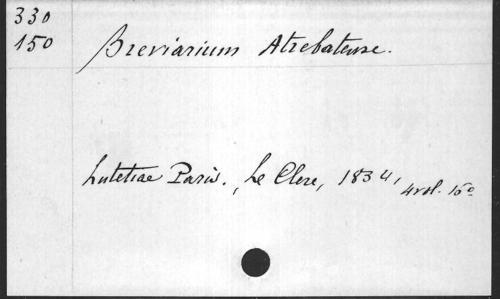 330
150
Breviarium Atrebatense.
Lutetiae Paris., Le Clere, 1834, 4 vol. 15°